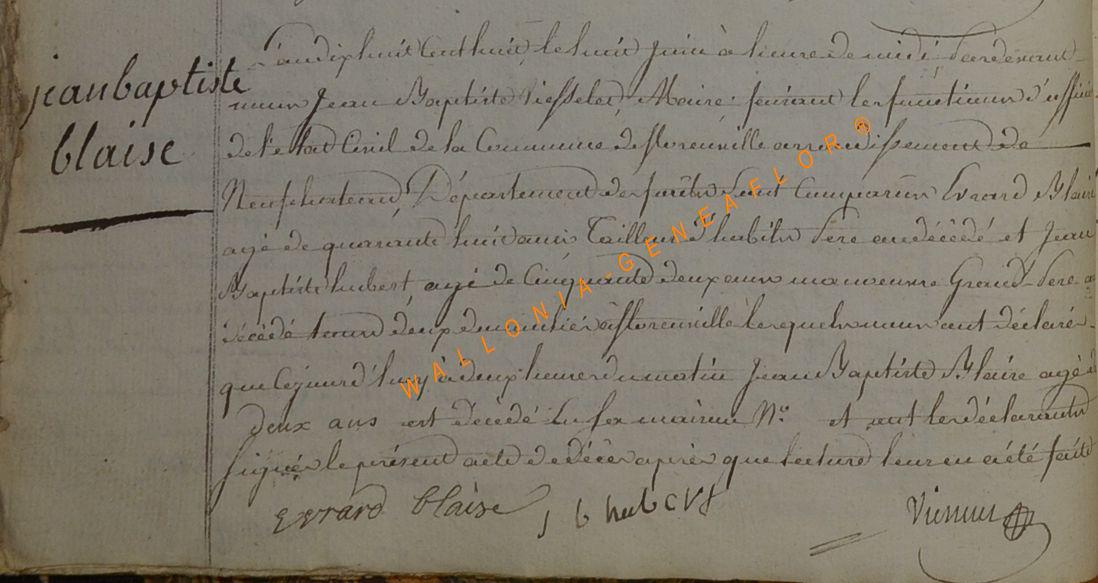 jean baptiste
blaise
L'an dix huit Cent huit, le huit Juin à l'heure de midi, Pardevant
nous Jean Baptiste Maire faisant les functions d'officier
de l'etat Civil de la Commune de florenville arrondissement de
Neufchateau, Département des forêts sont Comparus Evrard Blaise
agé de quarante huit ans Tailleur d'habits Pere au décédé et Jean
Baptiste hubert, agé de Cinquante deux ans manoeuvre Grand-Pere au
décédé tous deux domiciliés à florenville lesquels nous ont déclaré
que Cejourd'huy à deux heures du matin Jean Baptiste Blaise agé de
deux ans est décédé En sa maison N.º et ont les déclarants
signés le présent acte de décès après que lecture leur en a été faite
Evrard blaise J b hubert
WALLONIA-GENEAFLOR®